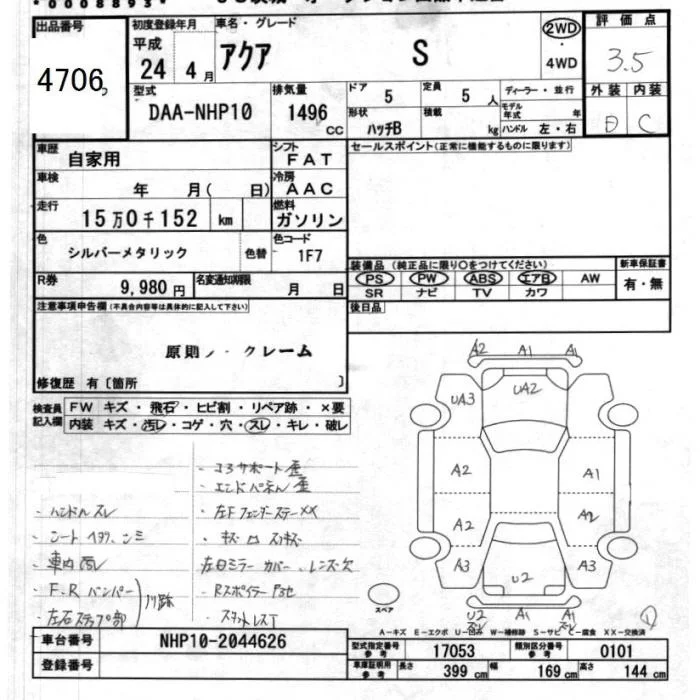 出品番号
4706
初度登録年月
平成
24年 4月
車名・グレード
アクア S
2WD
・
4WD
評価点
3.5
外装 内装
D C
型式
DAA-NHP10
排気量
1496
CC
ドア
5
定員
5 人
形状
ハッチB
積載
kg
ディーラー・並行
モデル年式 年
ハンドル 左・右
車歴
自家用
シフト
FAT
車検
年 月( 日)
冷房
AAC
走行
15万0千152 km
燃料
ガソリン
色
シルバーメタリック
色替
色コード
1F7
R券
9,980円
名変通知期限
月 日
セールスポイント(正常に機能するものに限ります)
装備品(純正品に限り○をつけてください)
PS PW ABS エアB AW
SR ナビ TV カワ
新車保証書
有・無
後日品
注意事項申告欄(不具合内容等は具体的に記入して下さい)
原則ノークレーム
修復歴 有〔箇所 〕
検査員
記入欄
FW キズ・飛石・ヒビ割・リペア跡・×要
内装 キズ・汚レ・コゲ・穴・スレ・キレ・破レ
・ハンドル スレ
・シート ヨゴレ、シミ
・車内 汚レ
・F.R バンパー
・左右ステップ部
・コアサポート 歪
・エンドパネル 歪
・左F フェンダーステー XX
・左ドミラー カバー、レンズ欠
・Rスポイラー
A2 A1 A1
UA3 UA2
A2 A1
A2 A2
A3 U2 A3
U2 A1 A1
スペア
A-キズ E-エクボ U-凹み W-補修跡 S-サビ C-腐食 XX-交換済
車台番号
NHP10-2044626
登録番号
型式指定番号
参考
17053
類別区分番号
参考
0101
車庫証明用
参考
長さ 399 cm 幅 169 cm 高さ 144 cm